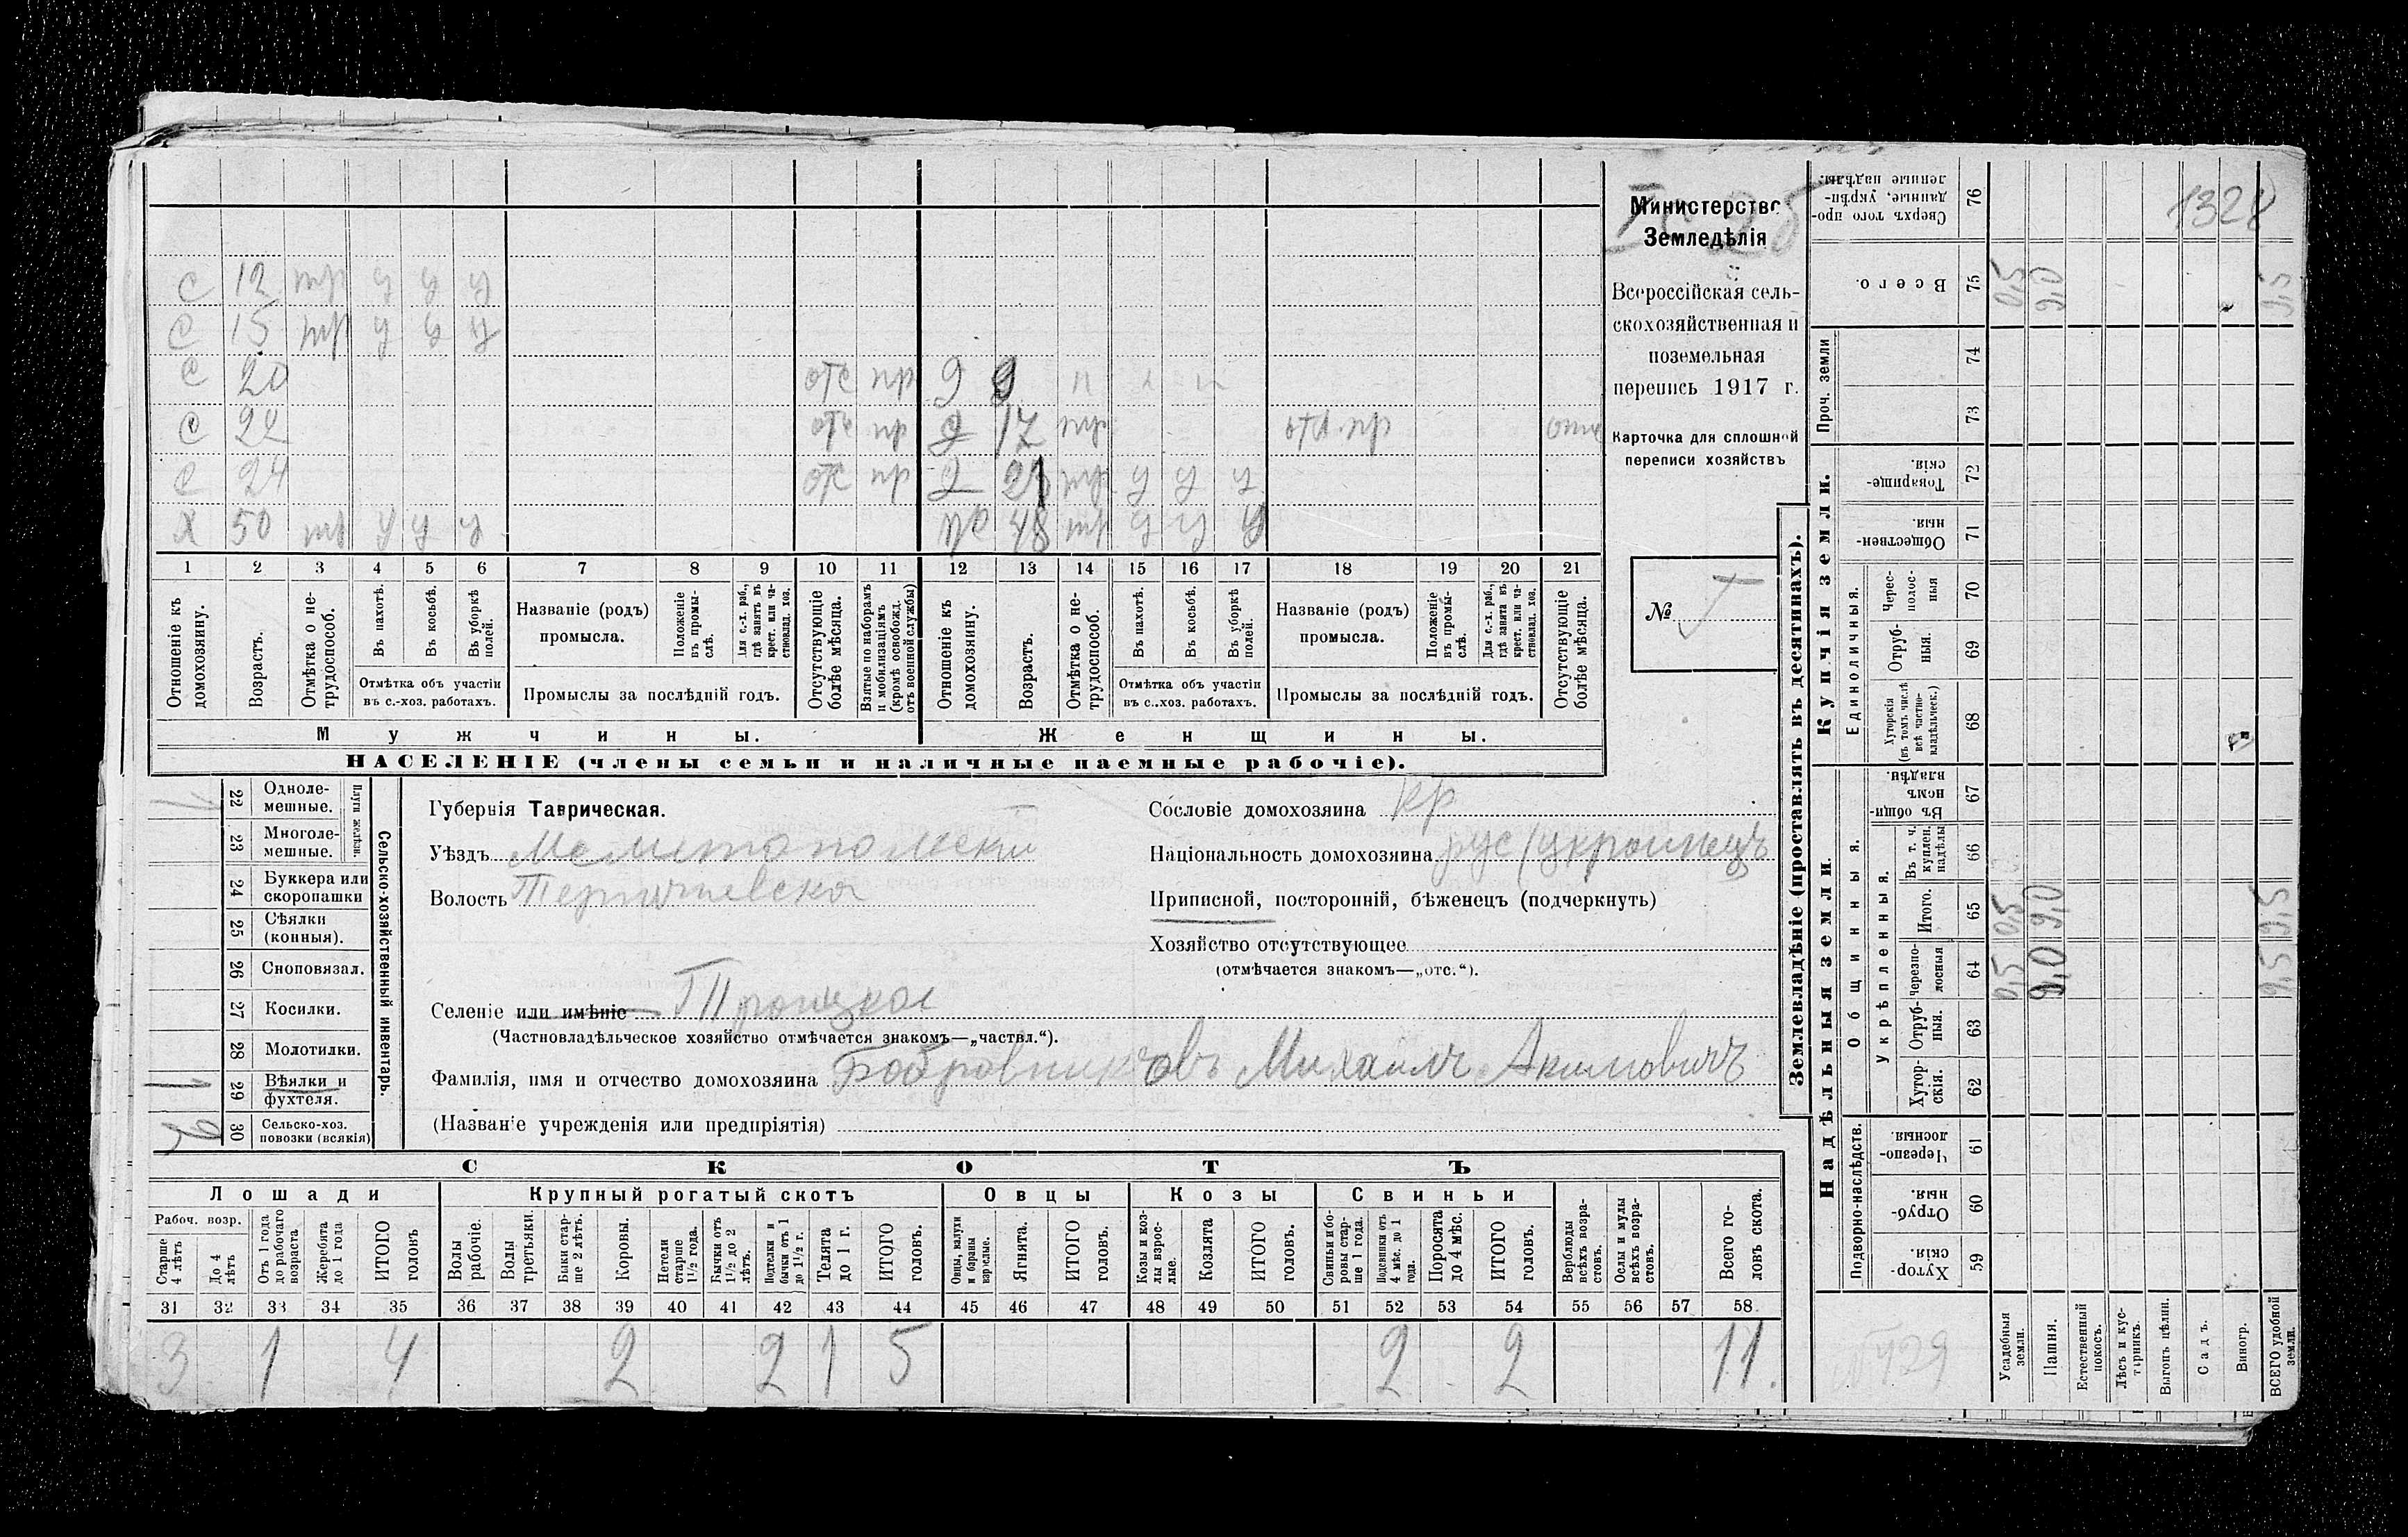 1328
С 12 тр у у у
С 15 тр у у у
С 20 отс пр д 9 н н н
С 22 отс пр д 17 тр отс. пр отс
С 24 отс пр д 21 тр у у у
Х 50 тр у у у ж 48 тр у у у
1 2 3 4 5 6 7 8 9 10 11 12 13 14 15 16 17 18 19 20 21
Отношеніе къ домохозяину.
Возрастъ.
Отмѣтка о нетрудоспособ.
Въ пахотѣ.
Въ косьбѣ.
Въ уборкѣ полей.
Отмѣтка объ участіи въ с.-хоз. работахъ.
Названіе (родъ) промысла.
Положеніе въ промыслѣ.
Для с.-х. раб., гдѣ занятъ въ крест. или частновлад. хоз.
Промыслы за послѣдній годъ.
Отсутствующіе болѣе мѣсяца.
Взятые по наборамъ и мобилизаціямъ (кромѣ освобожд. отъ военной службы)
Отношеніе къ домохозяину.
Возрастъ.
Отмѣтка о нетрудоспособ.
Въ пахотѣ.
Въ косьбѣ.
Въ уборкѣ полей.
Отмѣтка объ участіи въ с.-хоз. работахъ.
Названіе (родъ) промысла.
Положеніе въ промыслѣ.
Для с.-х. раб., гдѣ занята въ крест. или частновлад. хоз.
Промыслы за послѣдній годъ.
Отсутствующіе болѣе мѣсяца.
Мужчины.
Женщины.
НАСЕЛЕНІЕ (члены семьи и наличные наемные рабочіе).
Министерство
Земледѣлія
Всероссійская сель-
скохозяйственная и
поземельная
перепись 1917 г.
Карточка для сплошной
переписи хозяйствъ
№
Сельско-хозяйственный инвентарь.
Плуги желѣзн.
22 Одноле-
мешные.
23 Многоле-
мешные.
24 Буккера или
скоропашки
25 Сѣялки
(конныя).
26 Сноповязал.
27 Косилки.
28 Молотилки.
1 29 Вѣялки и
фухтеля.
30 Сельско-хоз.
повозки (всякія)
Губернія Таврическая.
Уѣздъ Мелитопольскій
Волость Терпѣніевская
Селеніе или имѣніе Троицкое
(Частновладѣльческое хозяйство отмѣчается знакомъ—„частвл.“).
Фамилія, имя и отчество домохозяина Бобровниковъ Михаилъ Акимовичъ
(Названіе учрежденія или предпріятія)
Сословіе домохозяина кр
Національность домохозяина рус/украинецъ
Приписной, посторонній, бѣженецъ (подчеркнуть)
Хозяйство отсутствующее
(отмѣчается знакомъ—„отс.“).
СКОТЪ
Лошади
Крупный рогатый скотъ
Овцы
Козы
Свиньи
Рабоч. возр.
Старше 4 лѣтъ
До 4 лѣтъ
Отъ 1 года до рабочаго возраста
Жеребята до 1 года
ИТОГО головъ
Волы рабочіе.
Волы третьяки.
Быки старше 2 лѣтъ.
Коровы.
Нетели старше 1½ года.
Бычки отъ 1½ до 2 лѣтъ.
Подтелки и бычки отъ 1 до 1½ г.
Телята до 1 г.
ИТОГО головъ.
Овцы, валухи и бараны взрослые.
Ягнята.
ИТОГО головъ.
Козы и козлы взрослые.
Козлята
ИТОГО головъ.
Свиньи и боровы старше 1 года.
Подсвинки отъ 4 мѣс. до 1 года.
Поросята до 4 мѣс.
ИТОГО головъ.
Верблюды всѣхъ возрастовъ.
Ослы и мулы всѣхъ возрастовъ.
Всего головъ скота.
31 32 33 34 35 36 37 38 39 40 41 42 43 44 45 46 47 48 49 50 51 52 53 54 55 56 57 58
3 1 4 2 2 1 5 2 2 11.
Землевладѣніе (проставлять въ десятинахъ).
Купчія земли.
Надѣльныя земли.
Сверхъ того проданные, укрѣпленные надѣлы. 76
Всего. 75 0,5 9,0 9,5
Проч. земли
74
73
Товарищескія. 72
Общественныя. 71
Единоличныя.
Черес-полосныя 70
Отрубныя. 69
Хуторскія (въ томъ числѣ всѣ частновладѣльческ.) 68
Общинныя.
Въ общинномъ владѣн. 67
Укрѣпленныя.
Въ т. ч. куплен. надѣлы 66
Итого. 65 0,5 9,0 9,5
Черезполосныя 64 0,5 9,0 9,5
Отрубныя. 63
Хуторскія. 62
Подворно-наслѣдств.
Черезполосныя. 61
Отрубныя. 60
Хуторскія. 59
Усадебныя земли.
Пашня.
Естественный покосъ.
Лѣсъ и кустарникъ.
Выгонъ цѣлин.
Садъ.
Виногр.
ВСЕГО удобной земли.
429